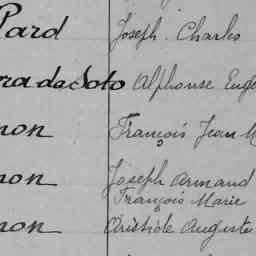 Pard Joseph. Charles
ra da Soto Alphonse Euge
non François Jean M
non Joseph Armand
François Marie
non Aristide Auguste